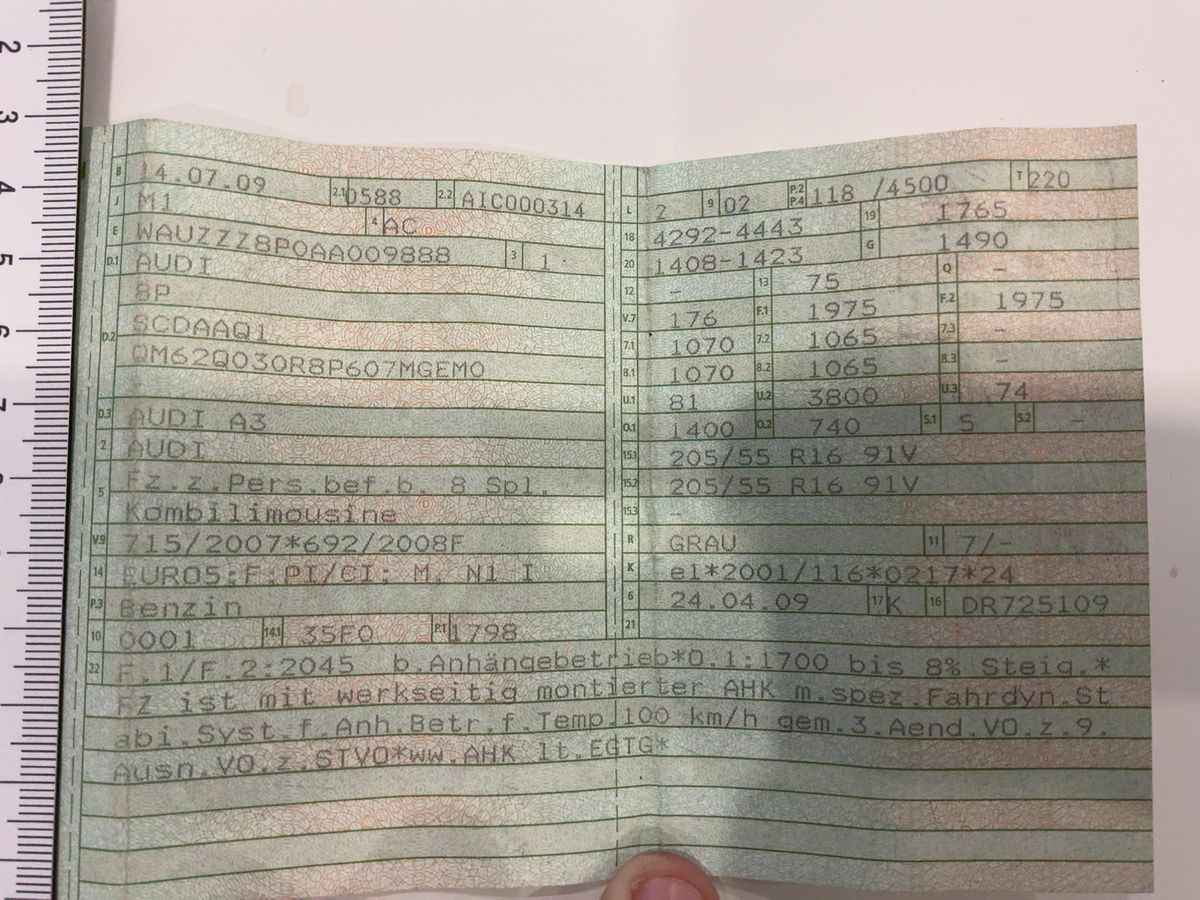 2
3
4
5
6
7
8
9
B 14.07.09 2.1 0588 2.2 AIC000314
J M1 4 AC
E WAUZZZ8P0AA009888 3 1
D.1 AUDI
8P
D.2 SCDAAQ1
QM62Q030R8P607MGEM0
D.3 AUDI A3
2 AUDI
5 Fz.z.Pers.bef.b. 8 Spl.
Kombilimousine
V.9 715/2007*692/2008F
14 EURO5;F;PI/CI; M, N1 I
P.3 Benzin
10 0001 14.1 35F0 P.1 1798
L 2 9 02 P.2 P.4 118 /4500 T 220
18 4292-4443 19 1765
20 1408-1423 G 1490
12 - 13 75 Q -
V.7 176 F.1 1975 F.2 1975
7.1 1070 7.2 1065 7.3 -
8.1 1070 8.2 1065 8.3 -
U.1 81 U.2 3800 U.3 74
O.1 1400 O.2 740 S.1 5 S.2 -
15.1 205/55 R16 91V
15.2 205/55 R16 91V
15.3 -
R GRAU 11 7/-
K e1*2001/116*0217*24
6 24.04.09 17 K 16 DR725109
21
22 F.1/F.2:2045 b.Anhängebetrieb*O.1:1700 bis 8% Steig.*
FZ ist mit werkseitig montierter AHK m.spez.Fahrdyn.St
abi.Syst.f.Anh.Betr.f.Temp.100 km/h gem.3.Aend.VO.z.9.
Ausn.VO.z.STVO*ww.AHK lt.EGTG*